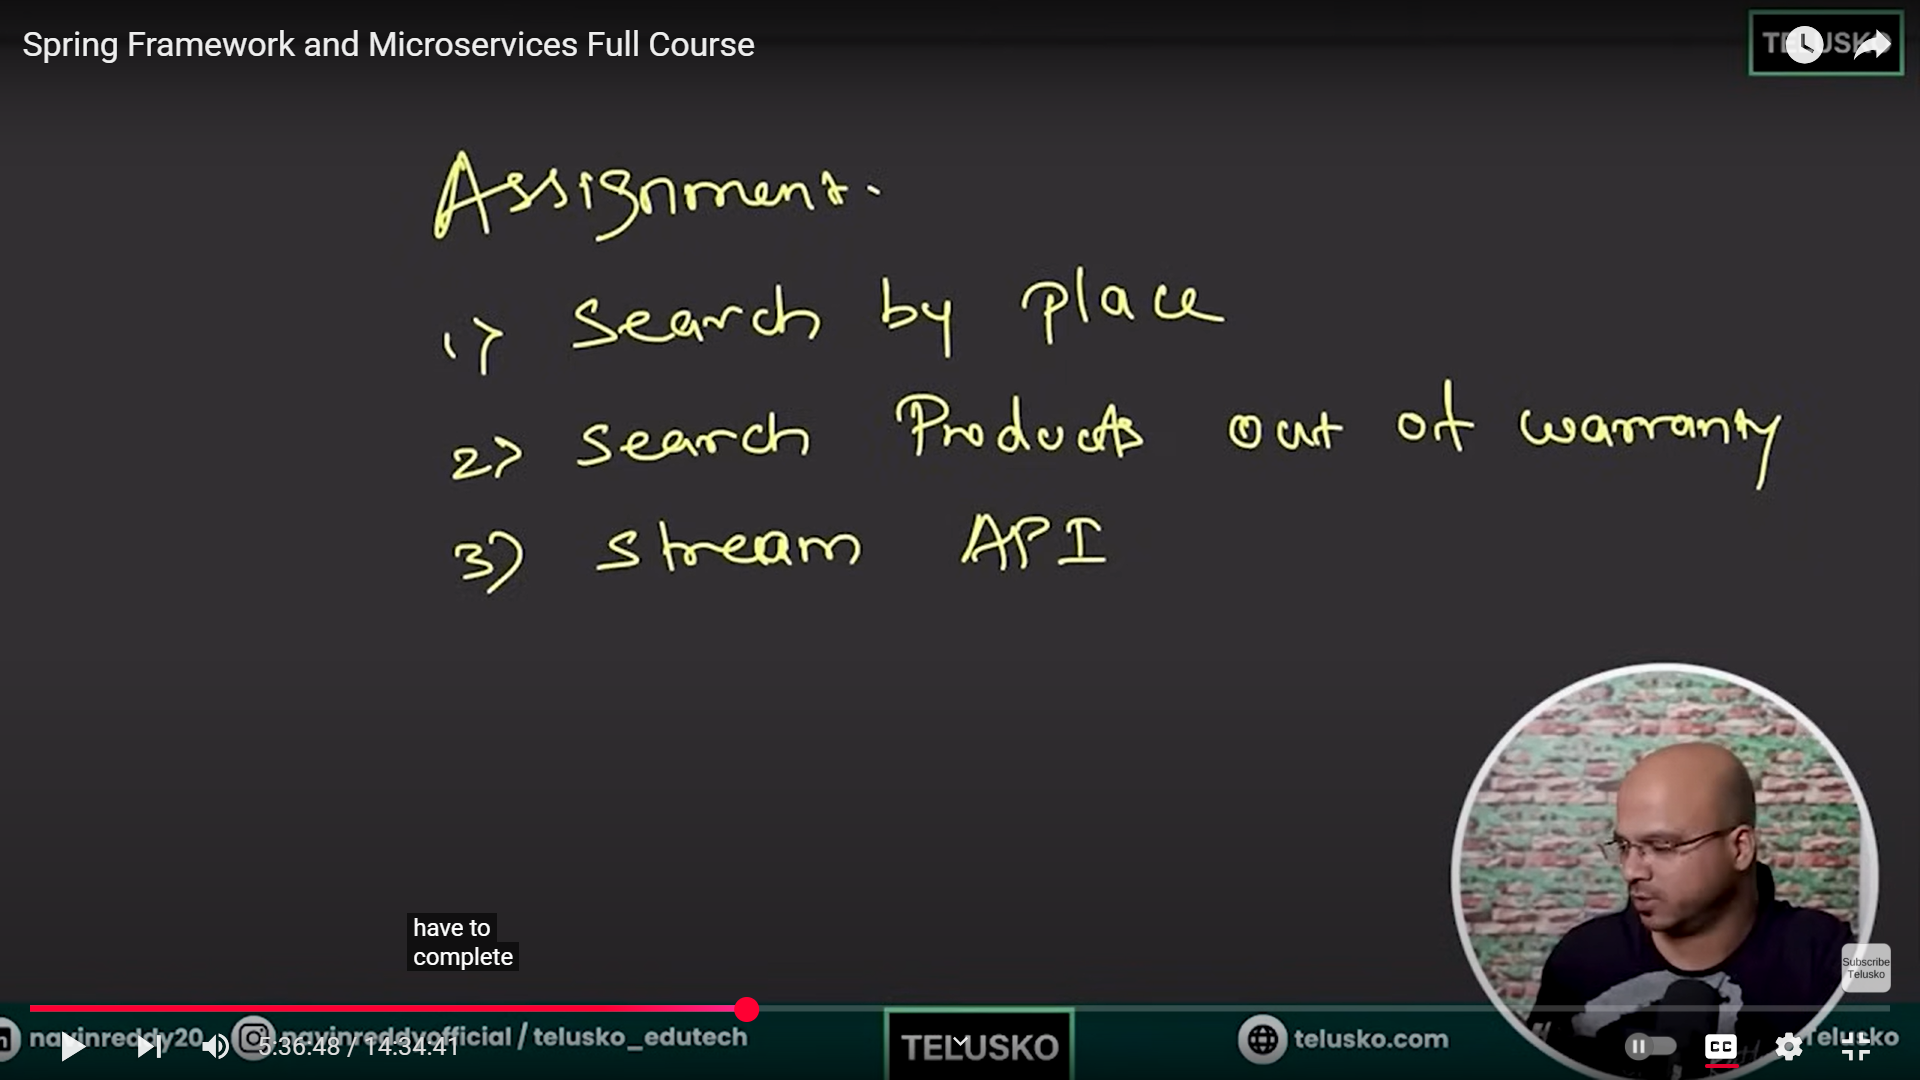 Spring Framework and Microservices Full Course
TELUSKO
Assignment.
1) Search by place
2) Search Products out of warranty
3) Stream API
have to
complete
Subscribe
Telusko
navinreddy20
navinreddyofficial / telusko_edutech
5:36:48 / 14:34:41
TELUSKO
telusko.com
CC
Telusko